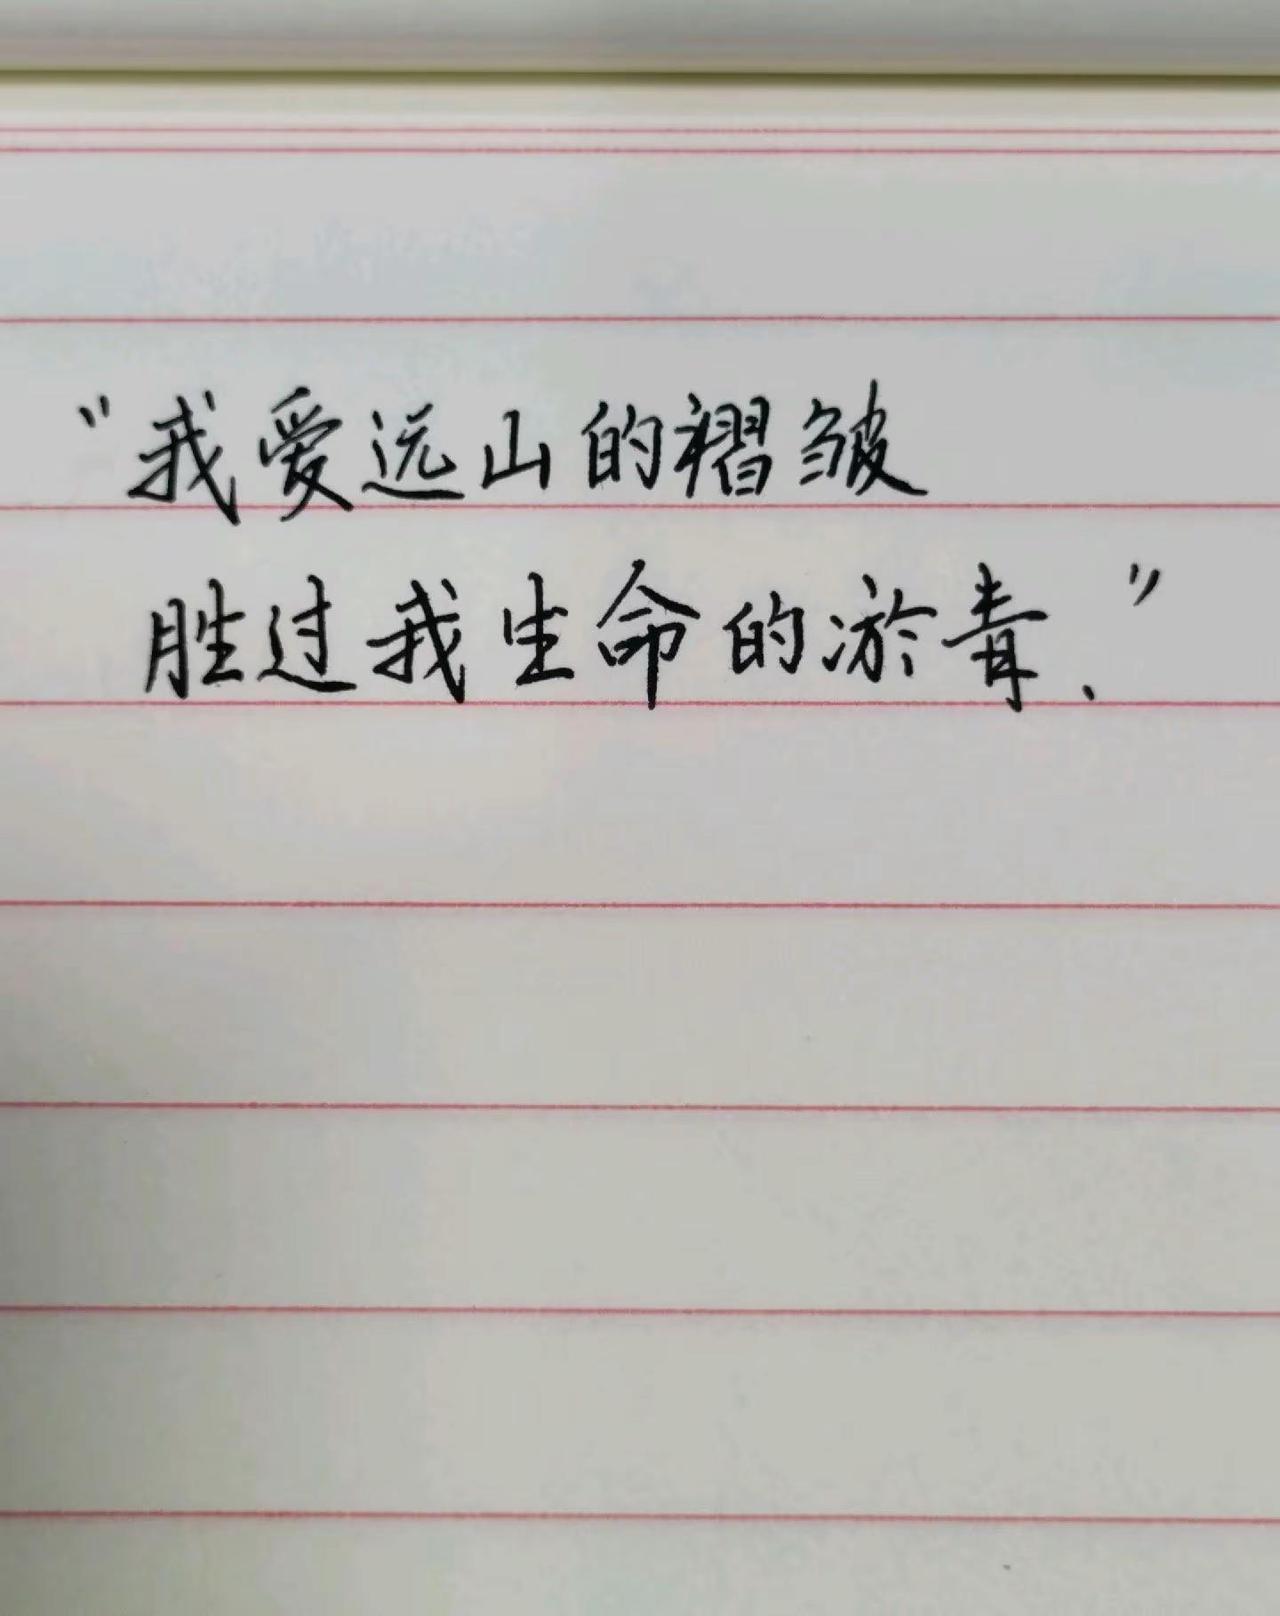 “我爱远山的褶皱
胜过我生命的淤青.”